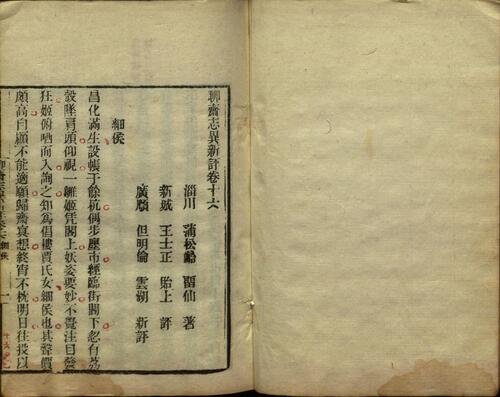 聊齋志異新評卷十六
淄川 蒲松齡 留仙 著
新城 王士正 貽上 評
廣順 但明倫 雲湖 新評
細侯
昌化滿生設帳于餘杭偶步廛市經臨街閣下忽有荔
殼墜肩頭仰視一雛姬凭閣上妖姿要妙不覺注目發
狂姬俯哂而入詢之知為倡樓賈氏女細侯也其聲價
頗高自顧不能適願歸齋冥想終宵不枕明日往投以
細侯
一